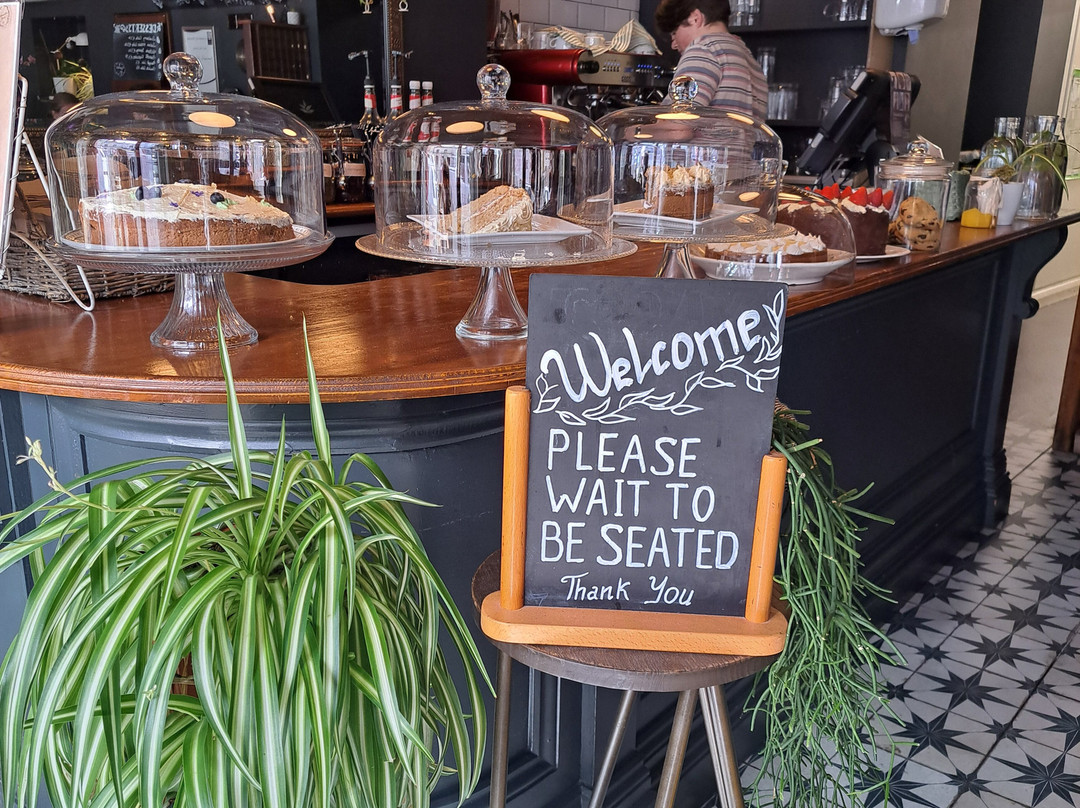 Welcome
PLEASE
WAIT TO
BE SEATED
Thank You